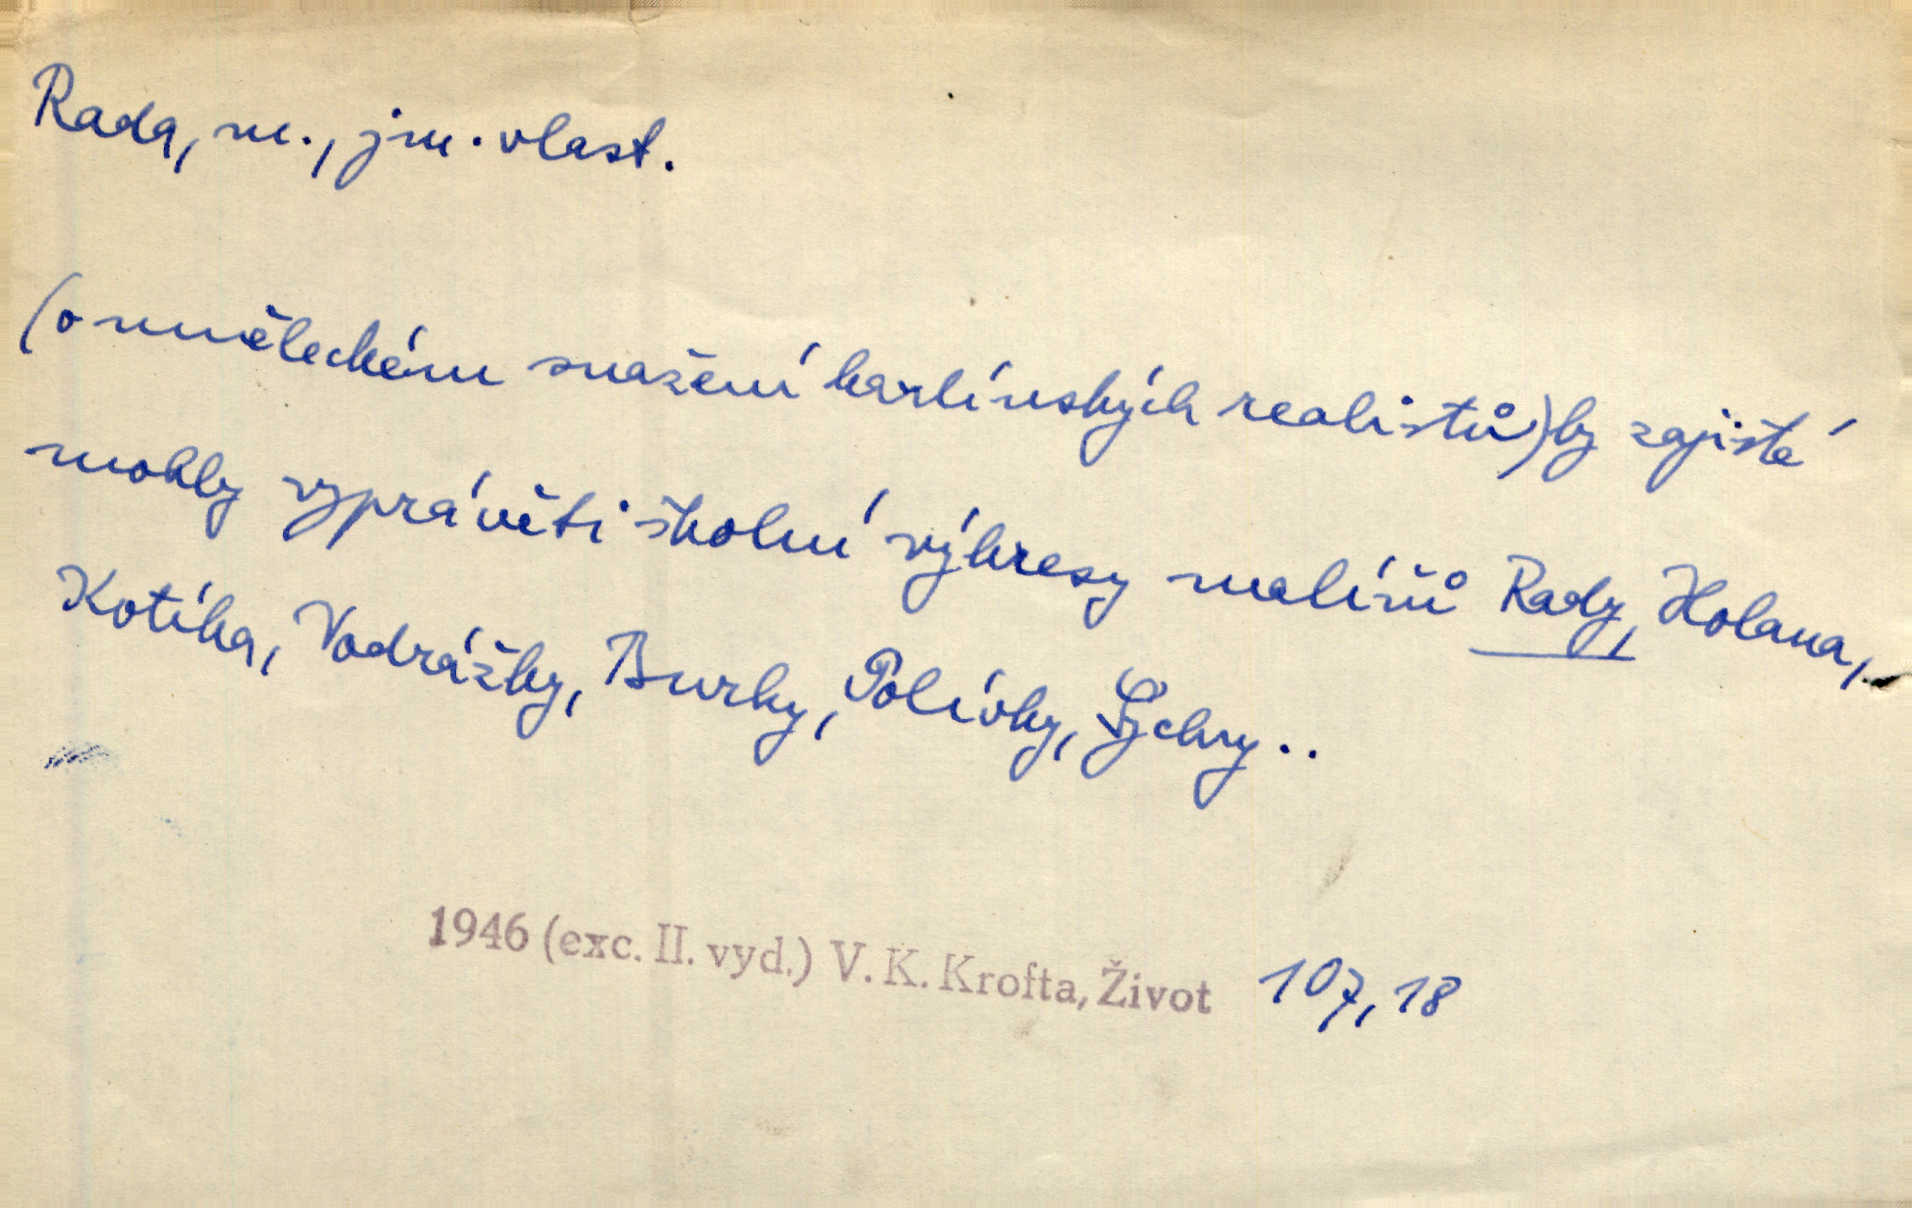 Rada, m., jm. vlast.
(o uměleckém snažení karlínských realistů) by zajisté
mohly vyprávěti školní výkresy malířů Rady, Holana,
Kotíka, Vodrážky, Burky, Polívky, Sychry..
1946 (exc. II. vyd.) V. K. Krofta, Život 107,18